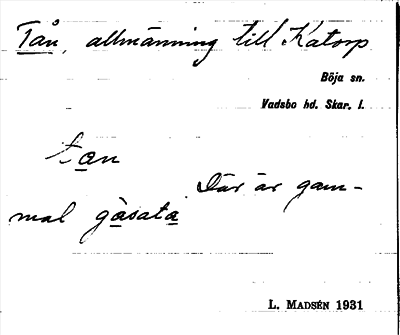 Tån, allmänning till Katorp
Böja sn.
Vadsbo hd. Skar. l.
tan
Där är gam-
mal gåsata
L. MADSÉN 1931